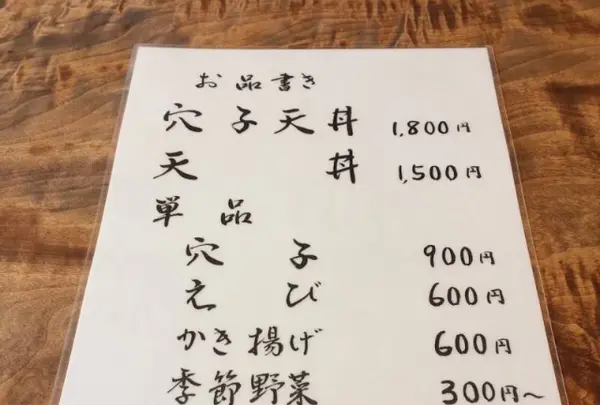 お品書き
穴子天丼 1,800円
天丼 1,500円
単品
穴子 900円
えび 600円
かき揚げ 600円
季節野菜 300円〜